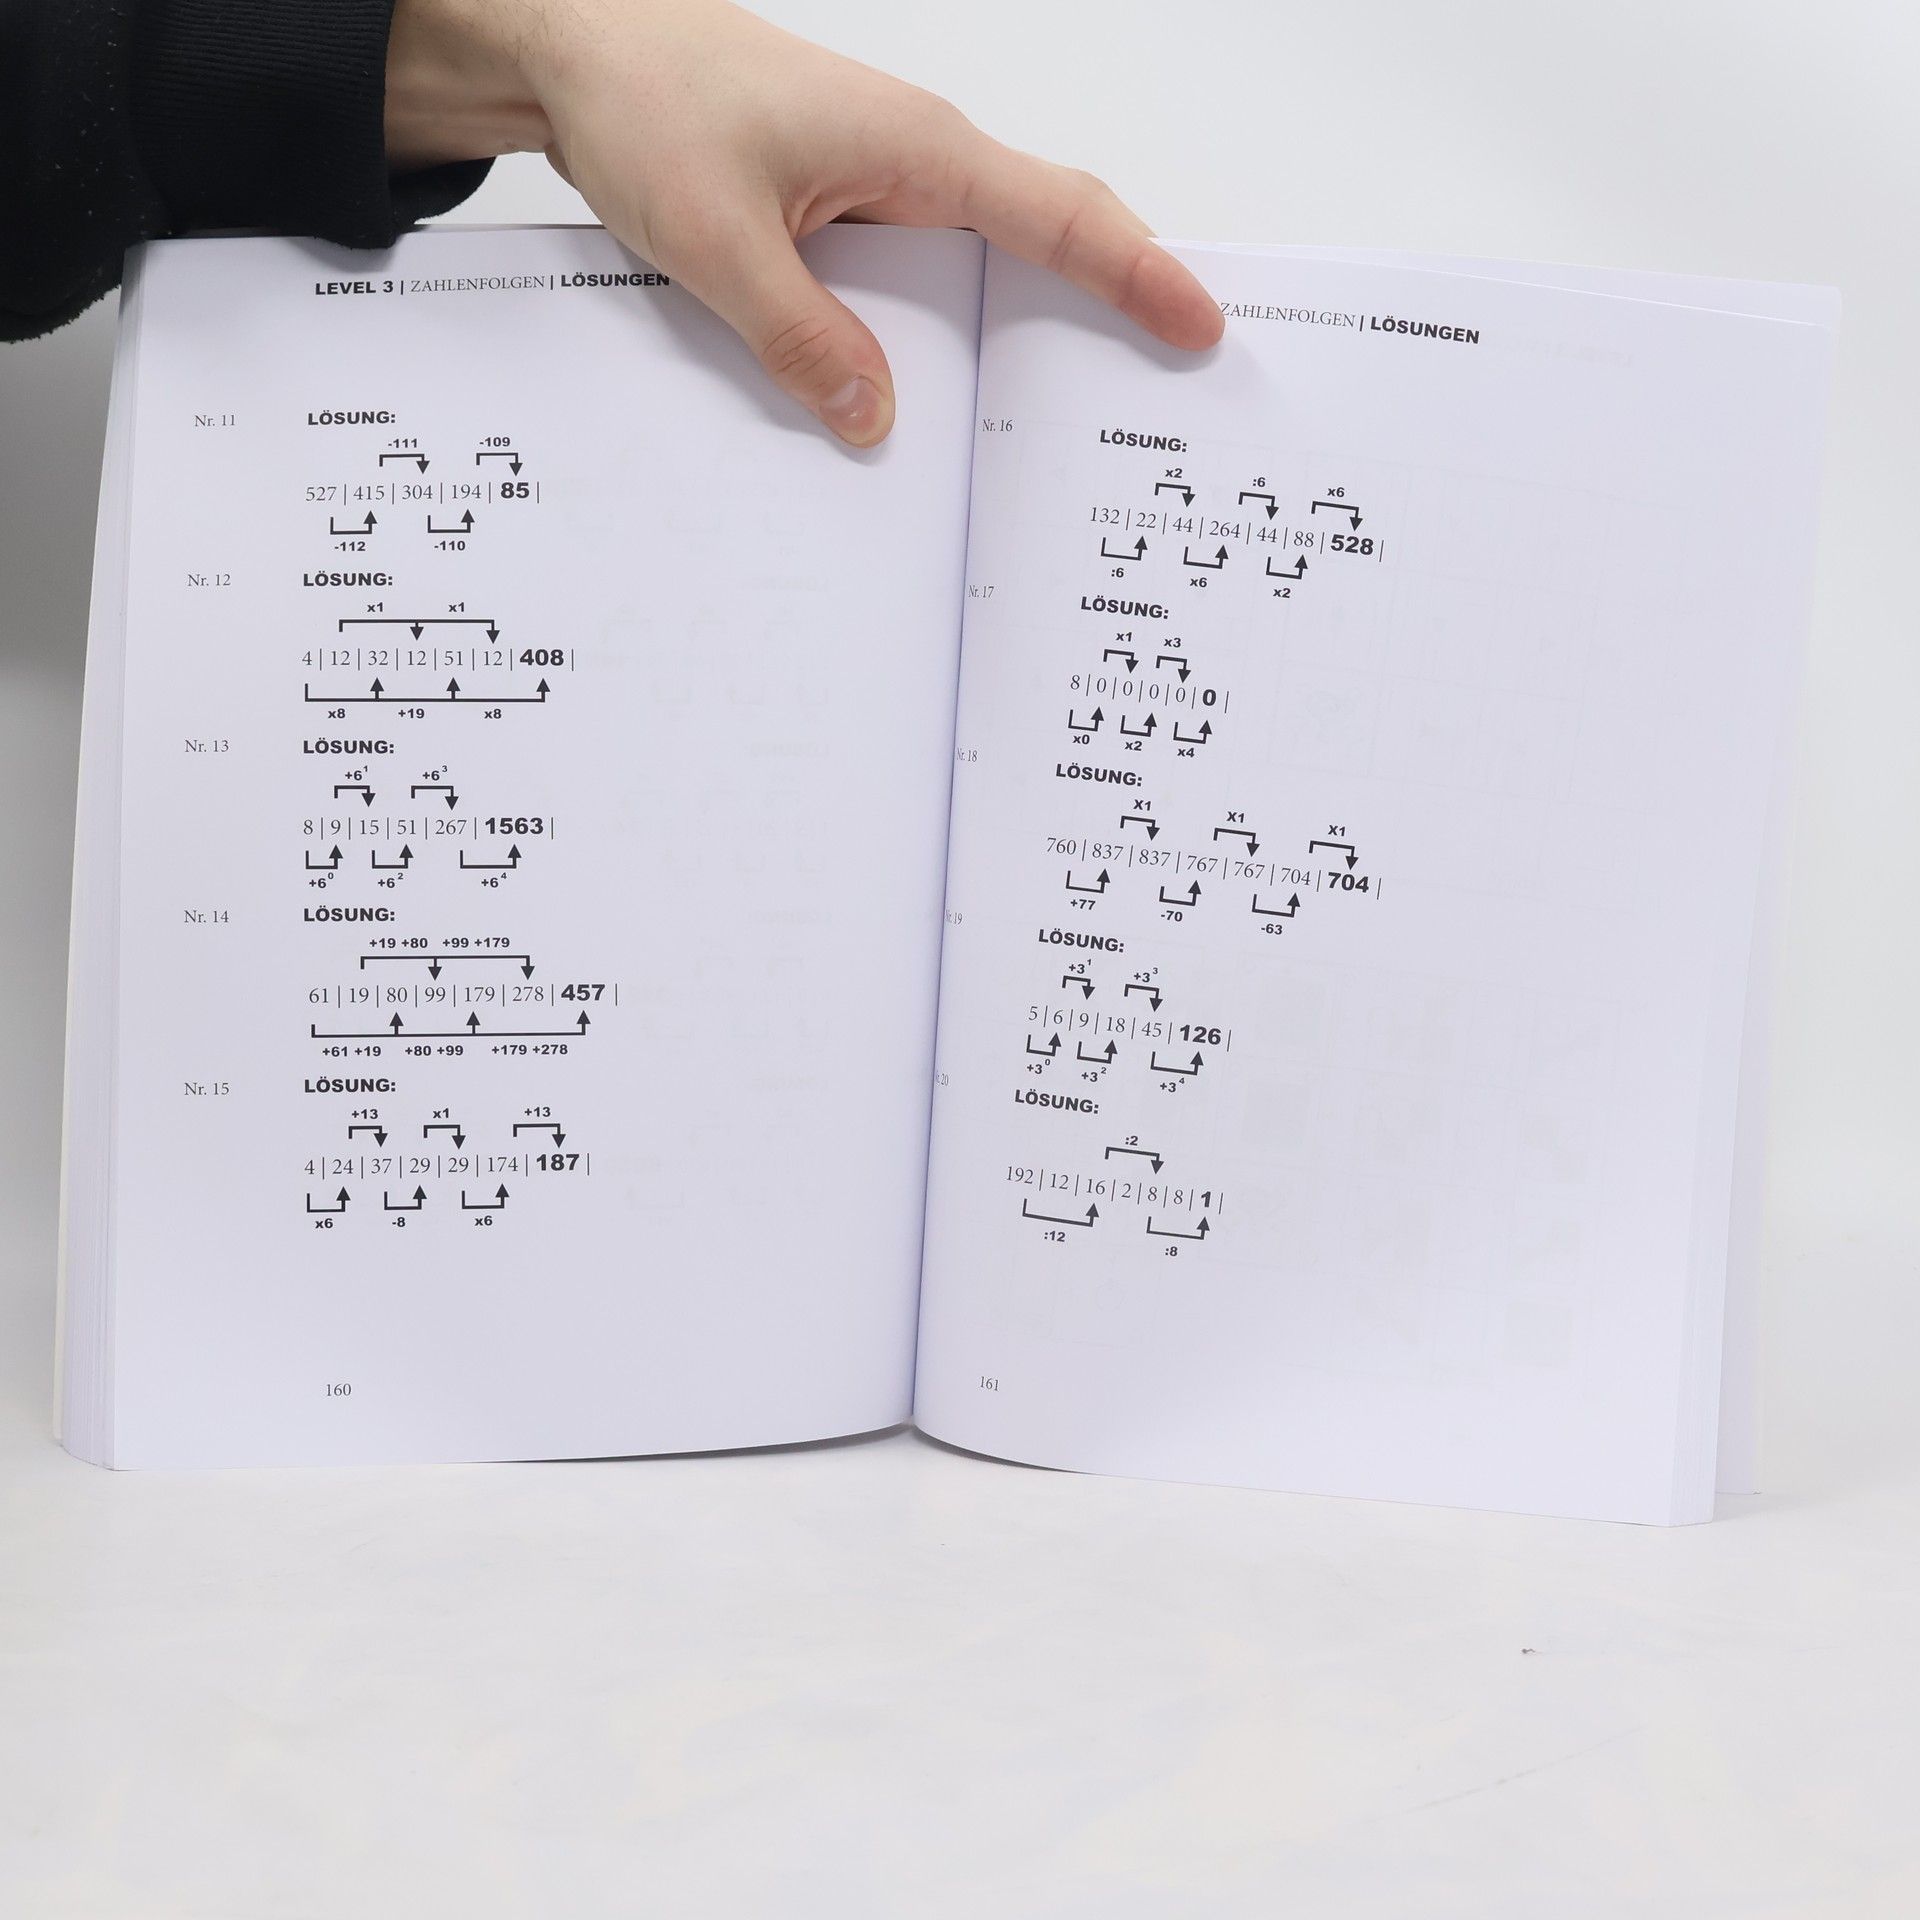 LEVEL 3 | ZAHLENFOLGEN | LÖSUNGEN
Nr. 11 LÖSUNG:
-111 -109
527 | 415 | 304 | 194 | 85 |
-112 -110
Nr. 12 LÖSUNG:
x1 x1
4 | 12 | 32 | 12 | 51 | 12 | 408 |
x8 +19 x8
Nr. 13 LÖSUNG:
+6¹ +6³
8 | 9 | 15 | 51 | 267 | 1563 |
+6⁰ +6² +6⁴
Nr. 14 LÖSUNG:
+19 +80 +99 +179
61 | 19 | 80 | 99 | 179 | 278 | 457 |
+61 +19 +80 +99 +179 +278
Nr. 15 LÖSUNG:
+13 x1 +13
4 | 24 | 37 | 29 | 29 | 174 | 187 |
x6 -8 x6
160
ZAHLENFOLGEN | LÖSUNGEN
Nr. 16 LÖSUNG:
x2 :6 x6
132 | 22 | 44 | 264 | 44 | 88 | 528 |
:6 x6 x2
Nr. 17 LÖSUNG:
x1 x3
8 | 0 | 0 | 0 | 0 | 0 |
x0 x2 x4
Nr. 18 LÖSUNG:
X1 X1 X1
760 | 837 | 837 | 767 | 767 | 704 | 704 |
+77 -70 -63
Nr. 19 LÖSUNG:
+3¹ +3³
5 | 6 | 9 | 18 | 45 | 126 |
+3⁰ +3² +3⁴
20 LÖSUNG:
:2
192 | 12 | 16 | 2 | 8 | 8 | 1 |
:12 :8
161